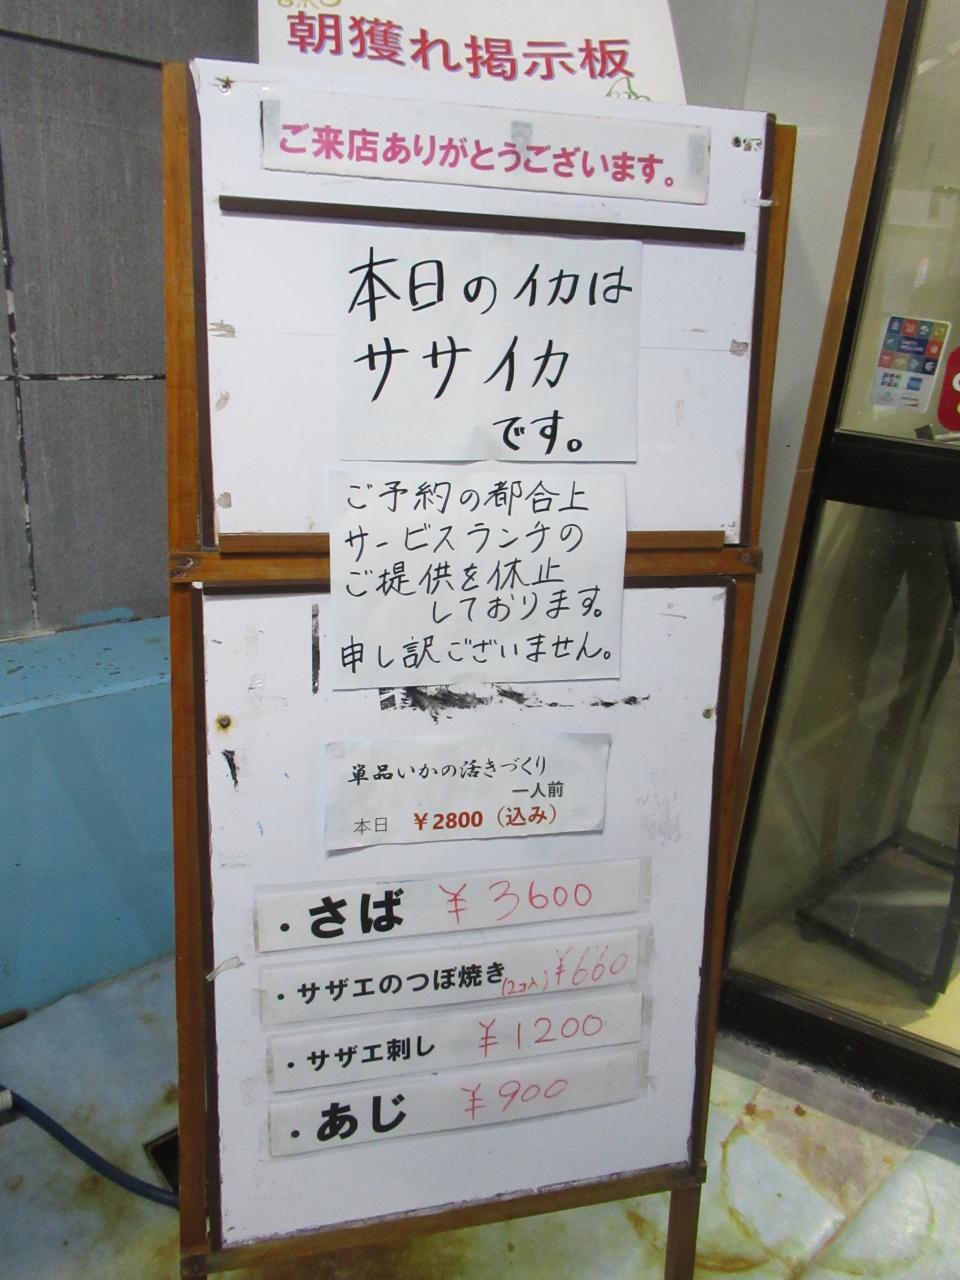 朝獲れ掲示板
ご来店ありがとうございます。
本日のイカは
ササイカ
です。
ご予約の都合上
サービスランチの
ご提供を休止
しております。
申し訳ございません。
単品いかの活きづくり
一人前
本日 ¥2800(込み)
・さば ¥3600
・サザエのつぼ焼き(2コ入)¥660
・サザエ刺し ¥1200
・あじ ¥900